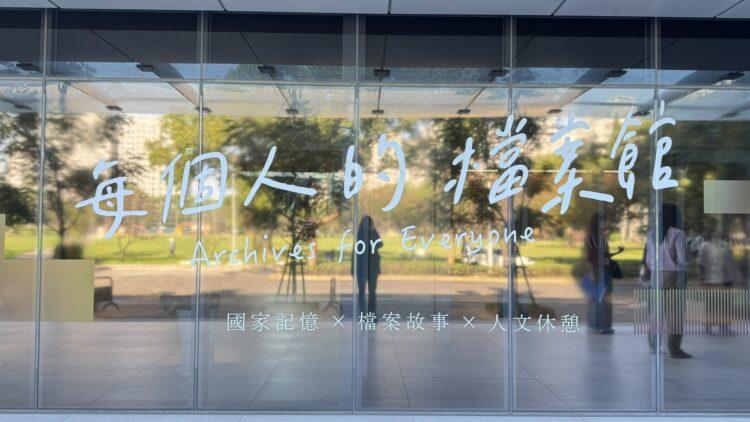 每個人的檔案館
Archives for Everyone
國家記憶×檔案故事×人文休憩